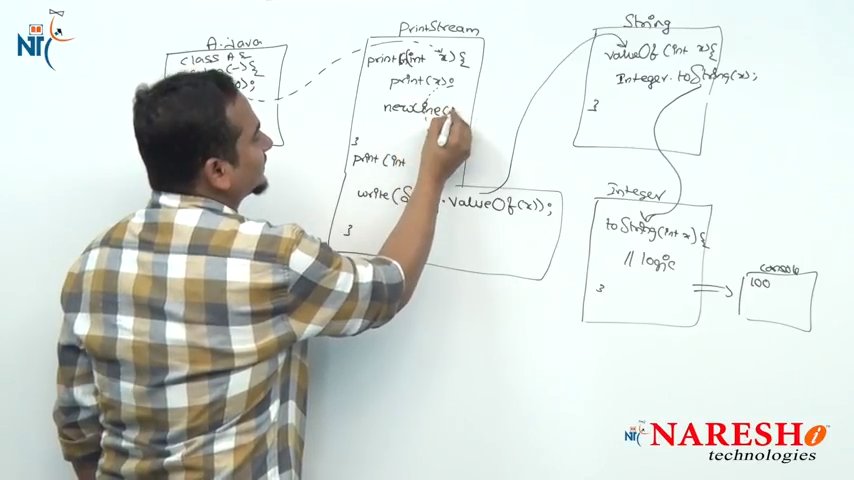 NTi
A.Java
class A {
PrintStream
(int x){
print(x);
newLine(
}
print(int
write(S .valueOf(x));
}
String
valueOf(int x){
Integer.toString(x);
}
Integer
toString(int x){
// logic
}
console
100
NTi NARESH i
technologies